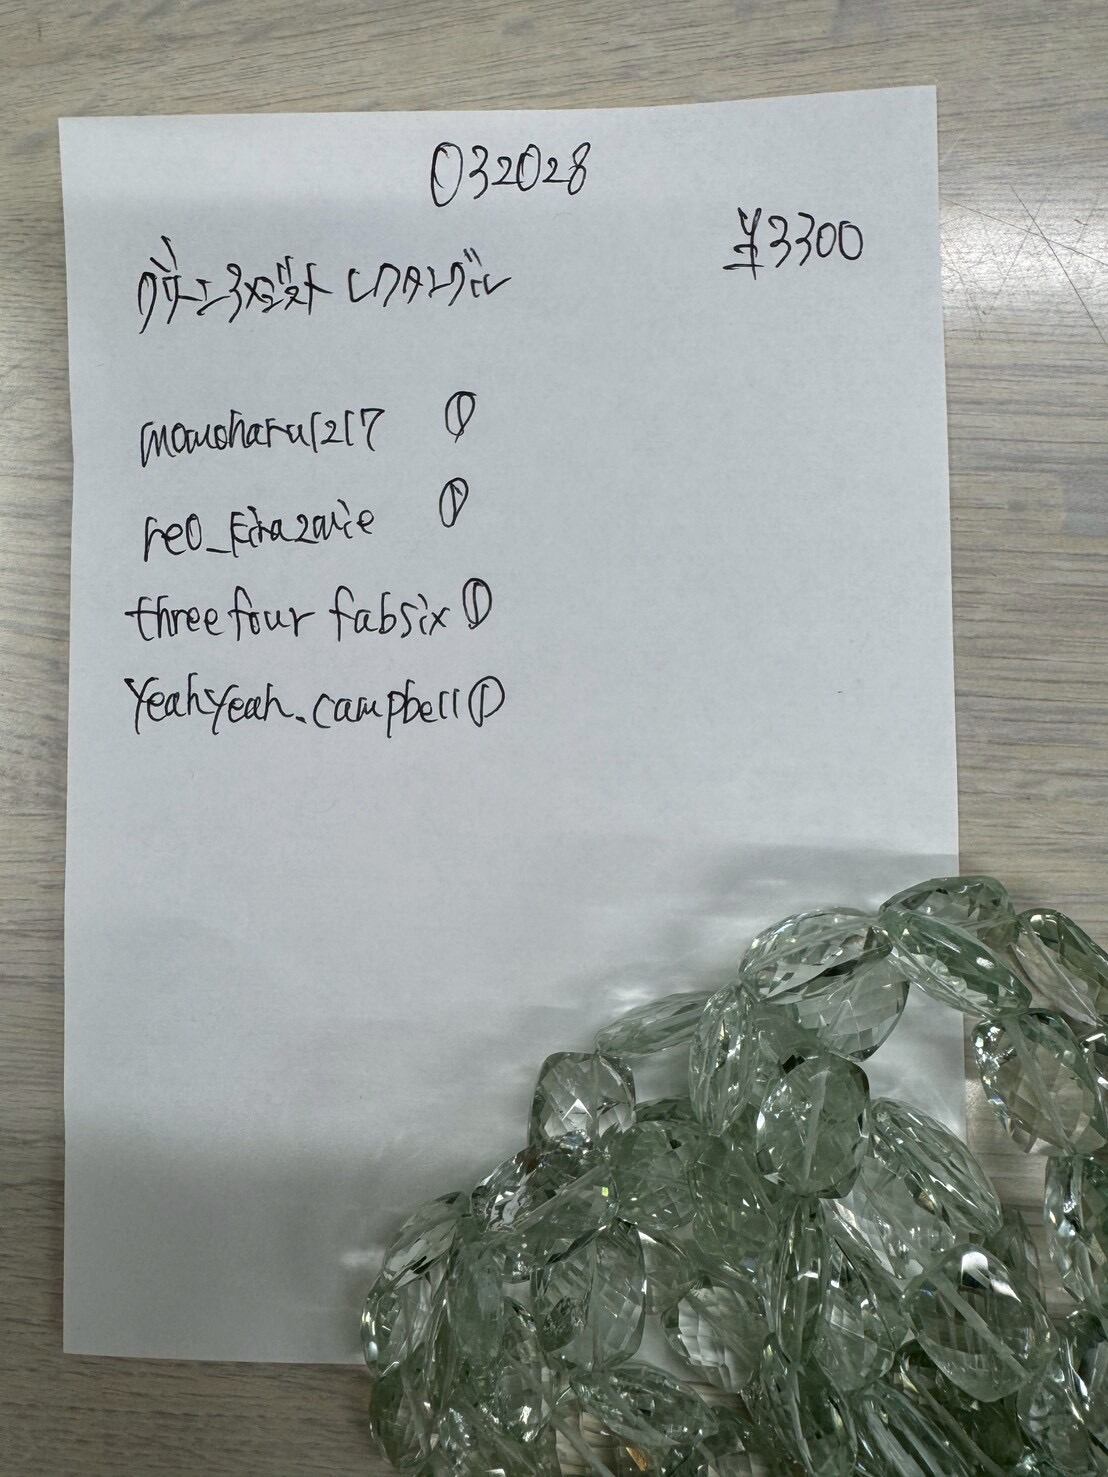 032028
¥3300
グリーンアメジスト レクタングル
momoharu1217 ①
reo_Eirazarie ①
threefour fabsix ①
Yeahyeah.campbell ①